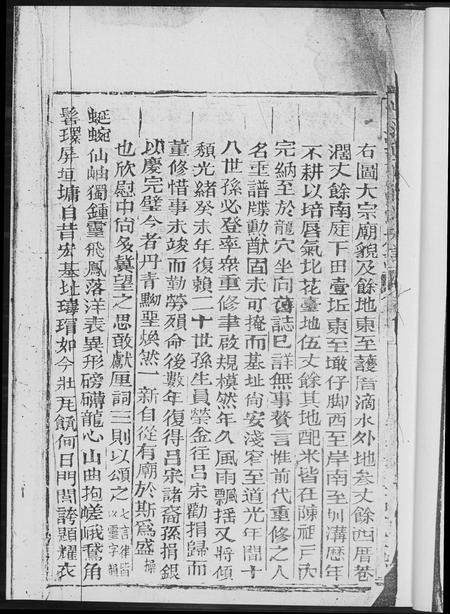 右圖大宗廟貌及餘地東至護厝滴水外地叁丈餘西厝巷
濶丈餘南庭下田壹坵東至墩仔脚西至岸南至圳溝歷年
不耕以培唇氣北花臺地伍丈餘其地配米皆在陳祖戸內
完納至於龍穴坐向舊誌已詳無事贅言惟前代重修之人
名重譜牒勲猷固未可掩而基址尚安淺窄至道光年間十
八世孫必登率衆重修聿啟規模然年久風雨飄揺又將傾
頹光緒癸未年復賴二十世孫生員榮金往呂宋勸捐歸而
董修惜事未竣而勤勞殞命後數年復得呂宋諸裔孫捐銀
以慶完璧今者丹青黝堊煥然一新自從有廟於斯爲盛
也欣慰中尚多冀望之思敢獻厘詞三則以頌之七言律皆以靈字韻
蜿蜿仙岫獨鍾靈飛鳳落洋表異形磅礴龍心山曲抱嵯峨鵞角
髻環屏垣墉自昔宏基址瑇瑁如今壯瓦甋何日門閭誇顯耀衣